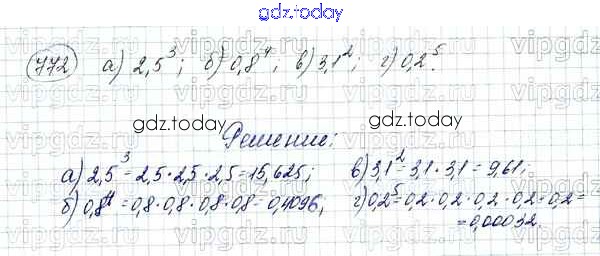 gdz.today
772 а) 2,5³; б) 0,8⁴; в) 3,1²; г) 0,2⁵.
gdz.today gdz.today
Решение:
а) 2,5³ = 2,5 · 2,5 · 2,5 = 15,625; в) 3,1² = 3,1 · 3,1 = 9,61;
б) 0,8⁴ = 0,8 · 0,8 · 0,8 · 0,8 = 0,4096; г) 0,2⁵ = 0,2 · 0,2 · 0,2 · 0,2 · 0,2 =
= 0,00032.
gdz.today